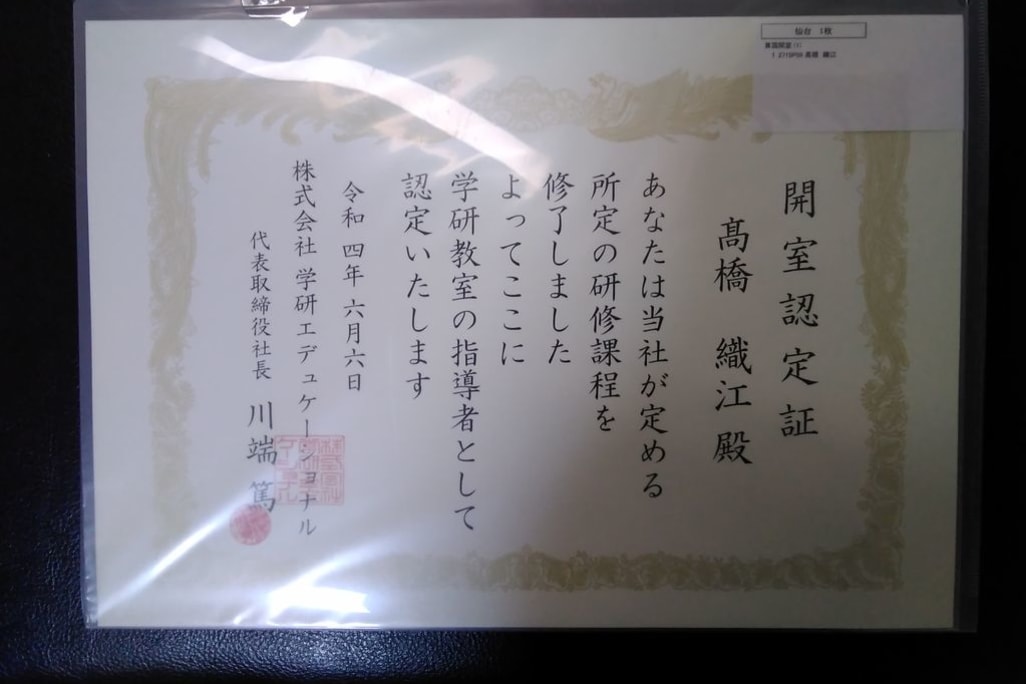 開室認定証
髙橋 織江 殿
あなたは当社が定める
所定の研修課程を
修了しました
よってここに
学研教室の指導者として
認定いたします
令和四年六月六日
株式会社 学研エデュケーショナル
代表取締役社長 川端 篤
仙台 1枚